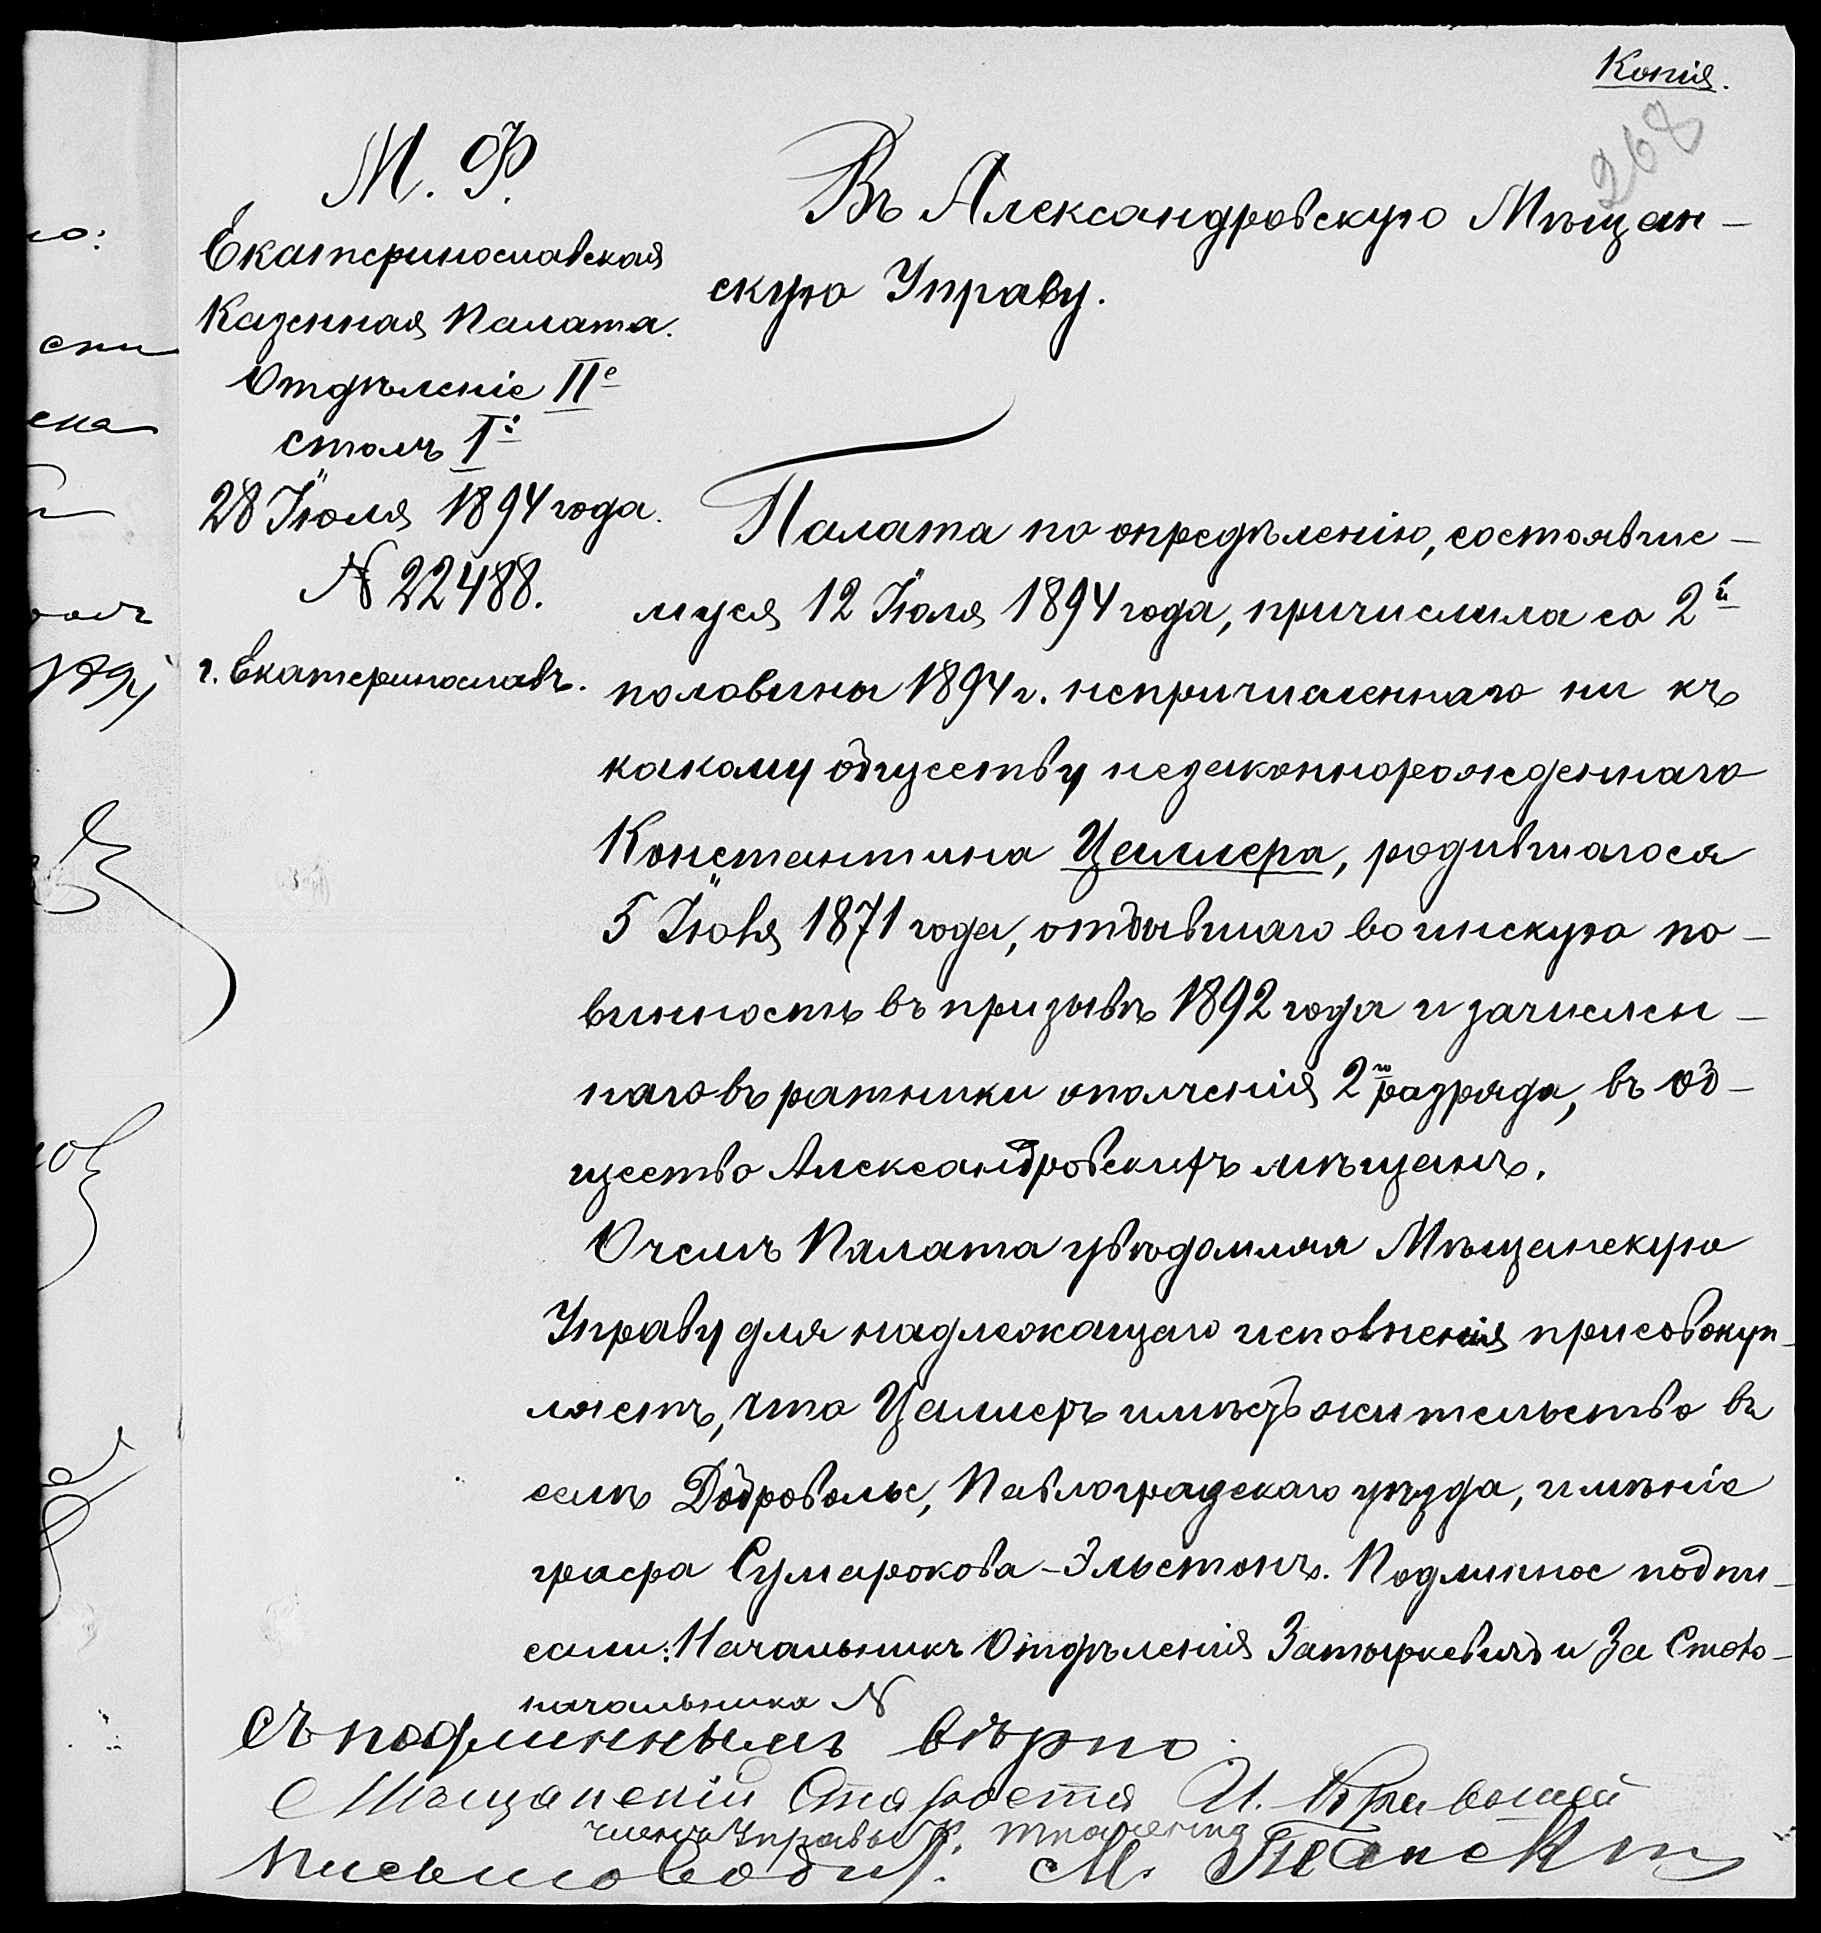 Копія.
268
М. Ф.
Екатеринославская
Казенная Палата.
Отдѣленіе II е
столъ I й
28 Іюля 1894 года.
N 22488.
г. Екатеринославъ.
Въ Александровскую Мѣщан-
скую Управу.
Палата по опредѣленію, состоявше-
муся 12 Іюля 1894 года, причислила со 2 й
половины 1894 г. непричисленнаго ни къ
какому обществу незаконнорожденнаго
Константина Целлера, родившагося
5 Іюля 1871 года, отбывшаго воинскую по-
винность въ призывѣ 1892 года и зачислен-
наго въ ратники ополченія 2 го разряда, въ об-
щество Александровскихъ мѣщанъ.
О чемъ Палата увѣдомляя Мѣщанскую
Управу для надлежащаго исполненія присовокуп-
ляетъ, что Целлеръ имѣетъ жительство въ
селѣ Доброволье, Павлоградскаго уѣзда, имѣніе
графа Сумарокова-Эльстонъ. Подлинное подпи-
сали: Начальникъ Отдѣленія Затыркевичъ и За Столо-
начальника N
Съ подлиннымъ вѣрно.
Мѣщанскій Староста И.
членъ Управы
Письмоводит. М.
ло:
ски
ска
189